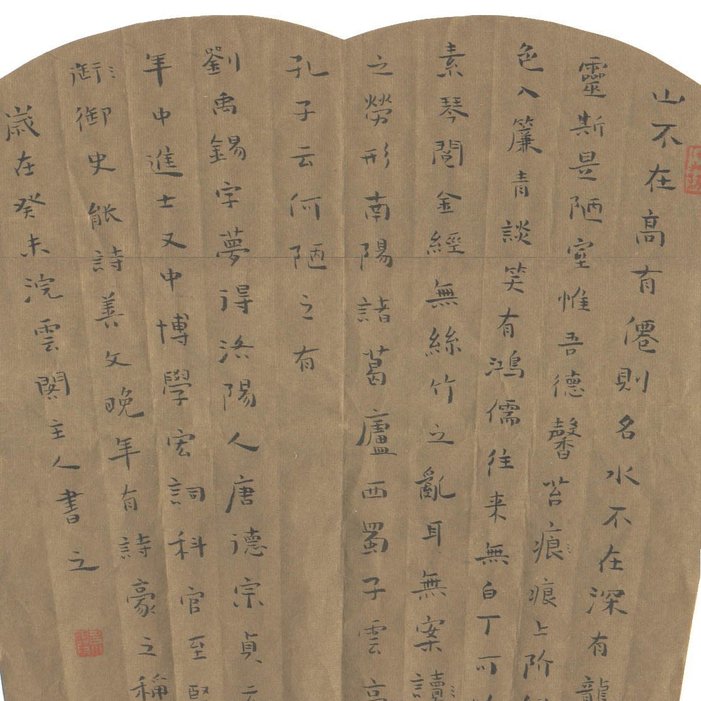 山不在高有僊則名水不在深有龍
靈斯昰陋室惟吾德馨苔痕痕上階
色入簾青談笑有鴻儒往来無白丁可
素琴閱金經無絲竹之亂耳無案讀
之勞形南陽諸葛廬西蜀子雲
孔子云何陋之有
劉禹錫字夢得洛陽人唐德宗貞
年中進士又中博學宏詞科官至
御史能詩善文晚年有詩豪之稱
歲在癸未浣雲閣主人書之